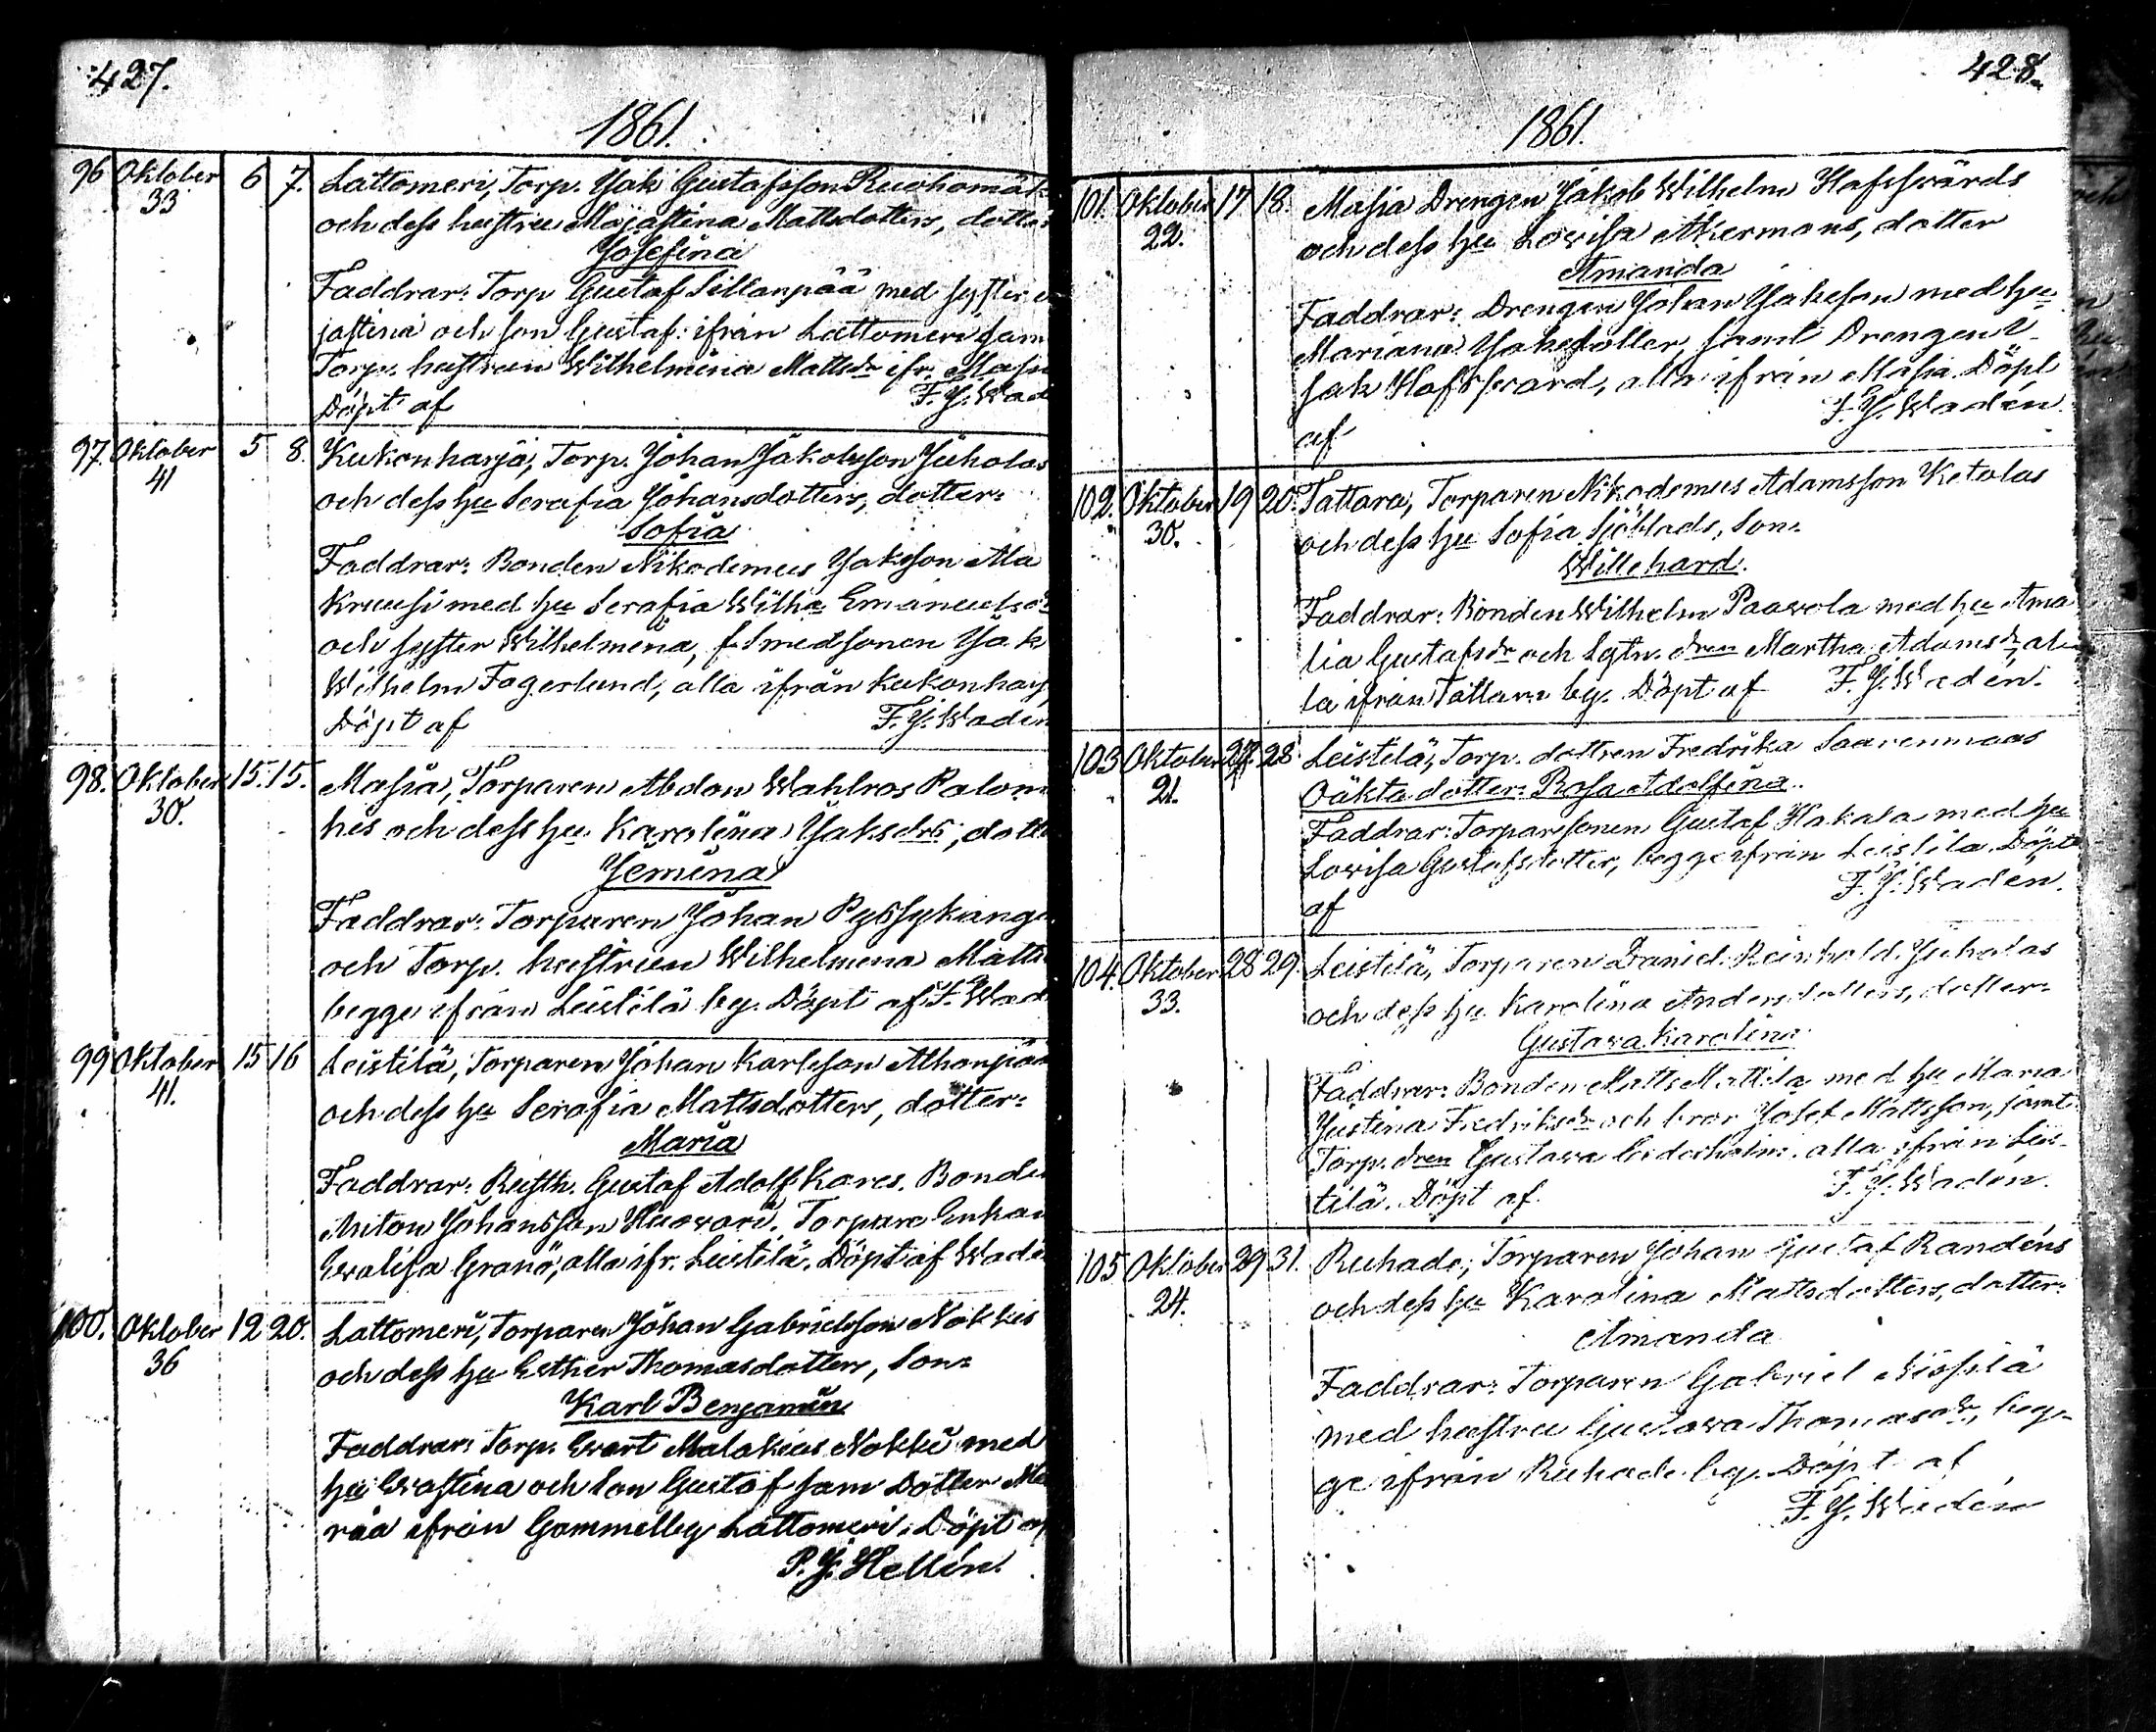 427.
1861.
96 Oktober 6 7. Lattomeri, Torp. Jak Gustafsson Ruohomäk
33 och dess hustru Majastina Mattsdotters, dotter
Josefina
Faddrar: Torp Gustaf Sillanpää med syster
jastina och son Gustaf: ifrån Lattomeri sam
Torp. hustrun Wilhelmina Mattsdr ifr. Masia
Döpt af F. J. Wad
97. Oktober 5 8. Kukonharja, Torp. Johan Jakobsson Juholas
41 och dess hu Serafia Johansdotters, dotter:
Sofia
Faddrar: Bonden Nikodemus Jaksson Ala
Kruusi med hu Serafia Wilha Emanuelsdr
och syster Wilhelmina, f Smedsonen Jak
Wilhelm Fagerlund, alla ifrån Kukonharj
Döpt af F. J. Wadén
98. Oktober 15. 15. Masia, Torparen Abdon Wahlros Palom
30. his och dess hu. Karolina Jaksdrs, dotte
Jemina
Faddrar: Torparen Johan Pyssykanga
och Torp. hustrun Wilhelmina Matts
begge ifrån Leistilä by. Döpt af F. Wad
99 Oktober 15 16 Leistilä, Torparen Johan Karlsson Alhonpää
41. och dess hu Serafia Mattsdotters, dotter:
Maria
Faddrar: Rusth. Gustaf Adolf Kares. Bonde
Anton Johansson Huovari. Torpare Enkan
Evalisa Granö, alla ifr. Leistilä. Döpt af Wadé
100. Oktober 12 20. Lattomeri, Torparen Johan Gabrielsson Nokkis
36 och dess hu Esther Thomasdotters, Son:
Karl Benjamin
Faddrar: Torp. Evert Malakias Nokki med
hu Evastina och Son Gustaf sam Dotter Ma
ria ifrån Gammelby Lattomeri. Döpt af
P. J. Hellén.
428.
1861.
101. Oktober 17 18. Masia Drengen Jakob Wilhelm Hafssvärds
22. och dess hu Lovisa Akermans, dotter
Amanda
Faddrar: Drengen Johan Jaksson med hu
Mariana Jaksdotter samt Drengen I
sak Hafssvard, alla ifrån Masia. Döpt
af F. J. Wadén.
102. Oktober 19 20. Tattara, Torparen Nikodemus Adamsson Ketolas
30. och dess hu Sofia Sjöblads, Son:
Willehard.
Faddrar: Bonden Wilhelm Paavola med hu Ama
lia Gustafsdr och Sytn. dren Martha Adamsdr, al
la ifrån Tattara by. Döpt af F. J. Wadén.
103 Oktober 27. 28. Leistilä, Torp. dottren Fredrika Saarenmaas
21. Oäkta dotter: Rosa Adolfina.
Faddrar: Torparesonen Gustaf Hakala med hu
Lovisa Gustafsdotter, begge ifrån Leistila. Döpt
af F. J. Wadén.
104. Oktober 28 29. Leistilä, Torparen Daniel Reinhold Juholas
33. och dess hu Karolina Andersdotters, dotter:
Gustava Karolina
Faddrar: Bonden Matts Mattila med hu Maria
Justina Fredriksdr och bror Josef Mattsson, samt
Torp. dren Gustava Cederholm. alla ifrån Leis-
tilä. Döpt af F. J. Wadén.
105 Oktober 29 31. Ruhade, Torparen Johan Gustaf Randéns
24. och dess hu Karolina Mattsdotters, dotter:
Amanda
Faddrar: Torparen Gabriel Nissilä
med hustru Gustava Thomasdr, beg-
ge ifrån Ruhade by. Döpt af
F. J. Wadén